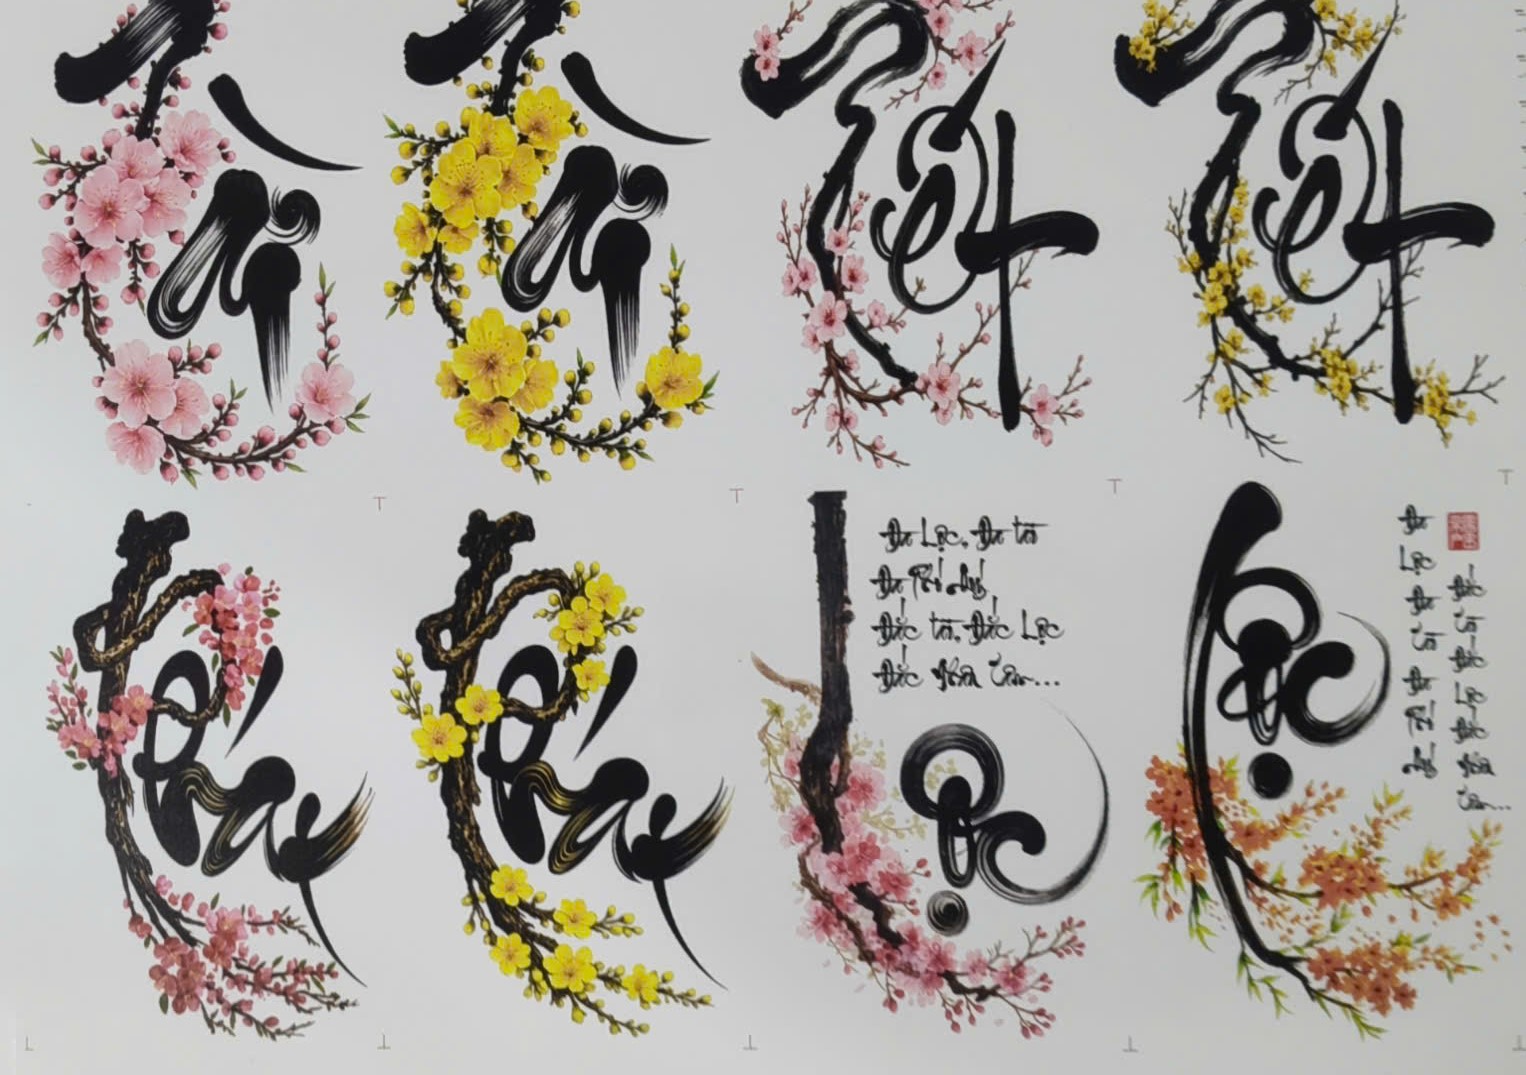 Tài
Tài
Tết
Tết
Đa Lộc, Đa tài
Đa Phú Quý
Đắc tài, Đắc Lộc
Đắc Nhân Tâm...
Lộc
Lộc
Đa Lộc Đa tài Đa Phú Quý
Đắc tài Đắc Lộc Đắc Nhân Tâm...